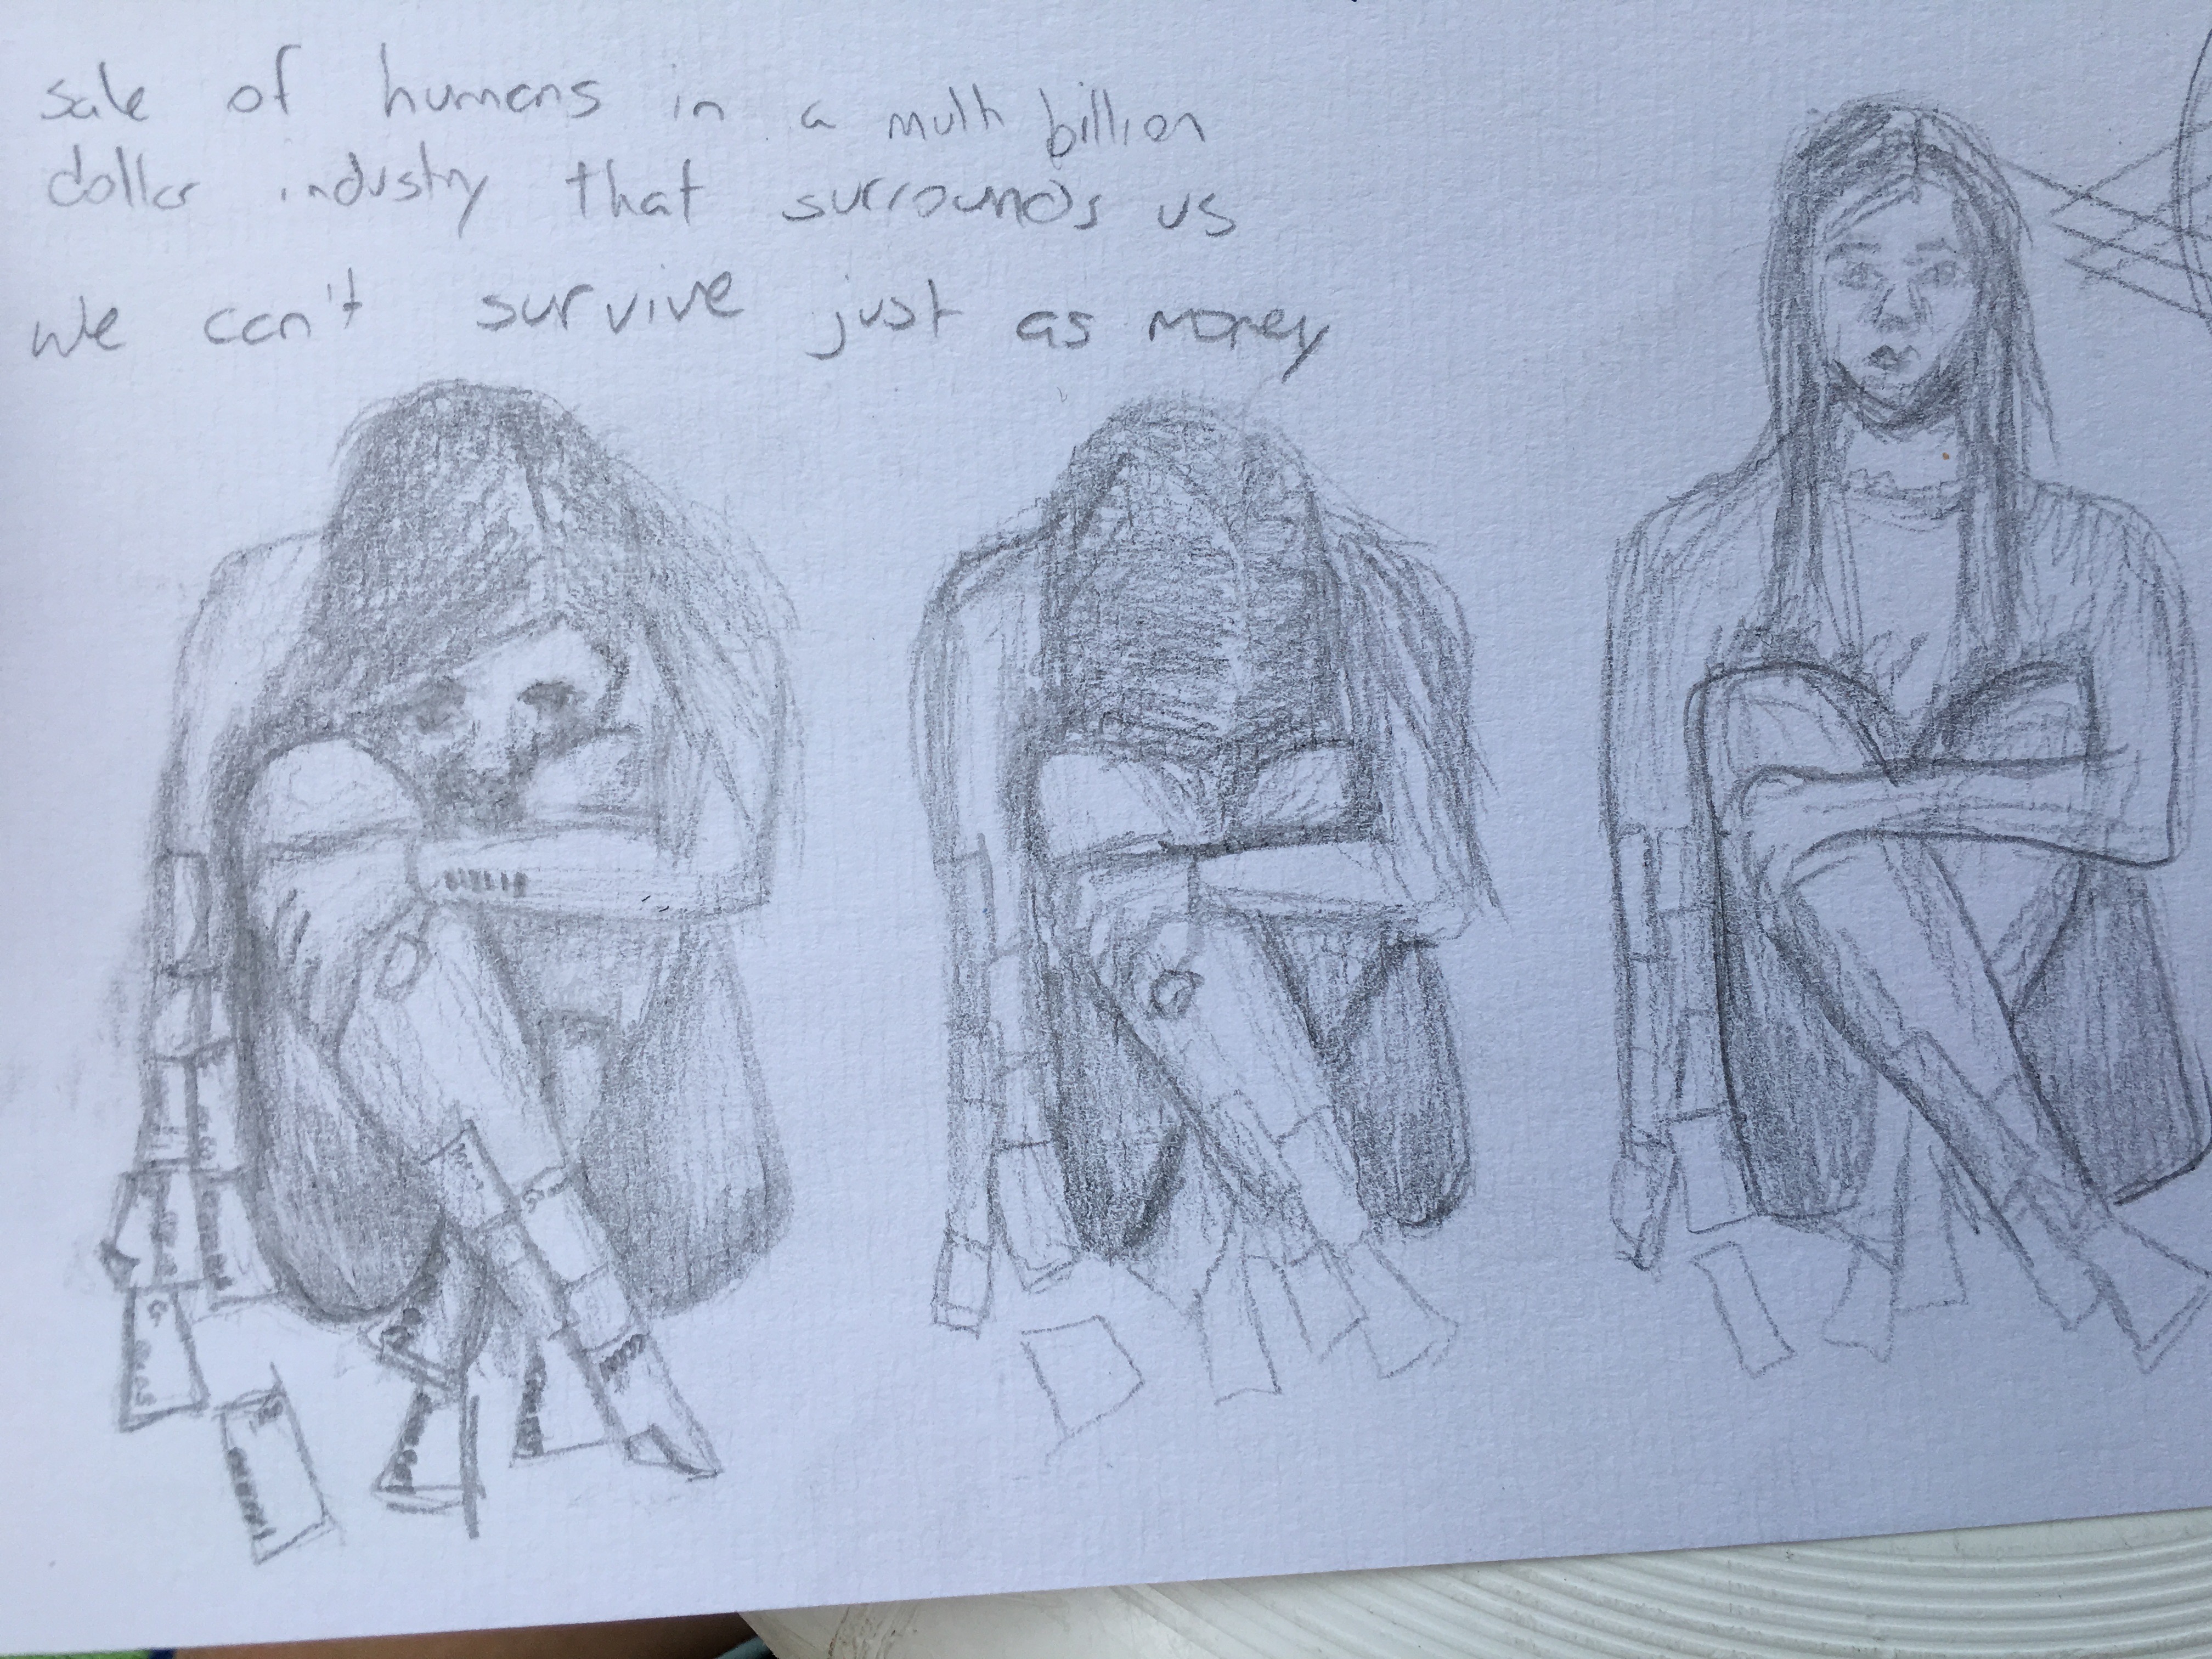 sale of humans in a multi billion
dollar industry that surrounds us
we can't survive just as money